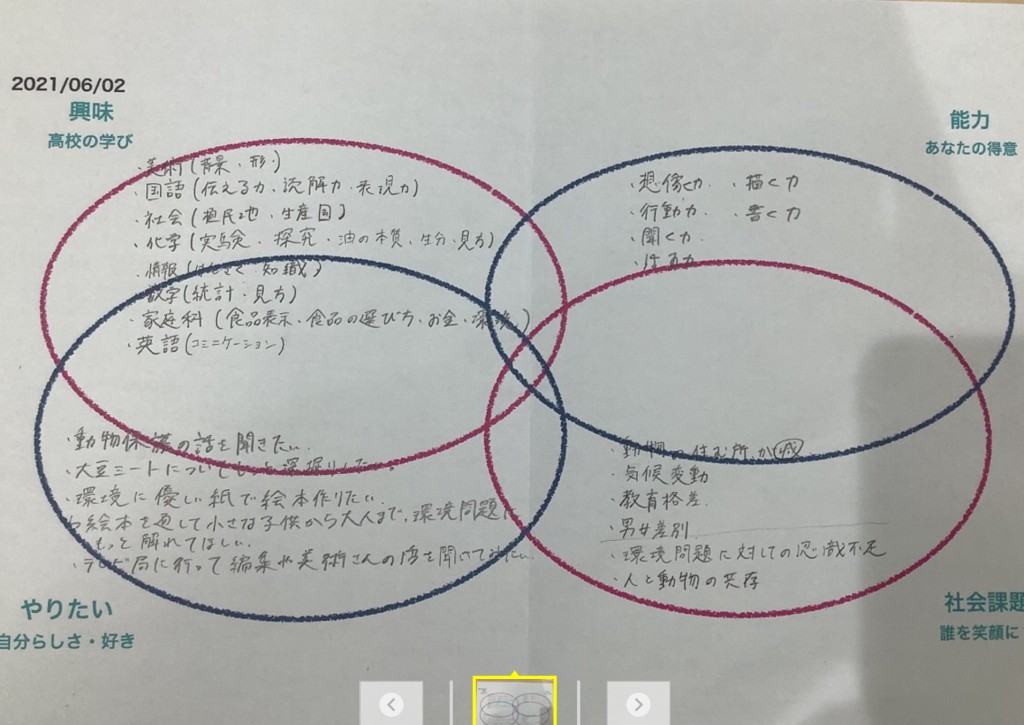 2021/06/02
興味
高校の学び
・美術(背景・形)
・国語(伝える力、読解力・表現力)
・社会(植民地、生産国)
・化学(実験、探究、油の本質、生分・見方)
・情報(・知識)
数学(統計・見方)
・家庭科(食品表示、食品の選び方、お金、環境)
・英語(コミニケーション)
能力
あなたの得意
・想像力 ・描く力
・行動力 ・書く力
・聞く力
・動物保護の話を聞きたい
・大豆ミートについてもっと深掘りしたい。
・環境に優しい紙で絵本作りたい
絵本を通して小さな子供から大人まで、環境問題に
もっと触れてほしい。
・テレビ局に行って編集や美術さんの
・動物の住む所が減
・気候変動
・教育格差
・男女差別
・環境問題に対しての認識不足
・人と動物の共存
やりたい
自分らしさ・好き
社会課題
誰を笑顔に